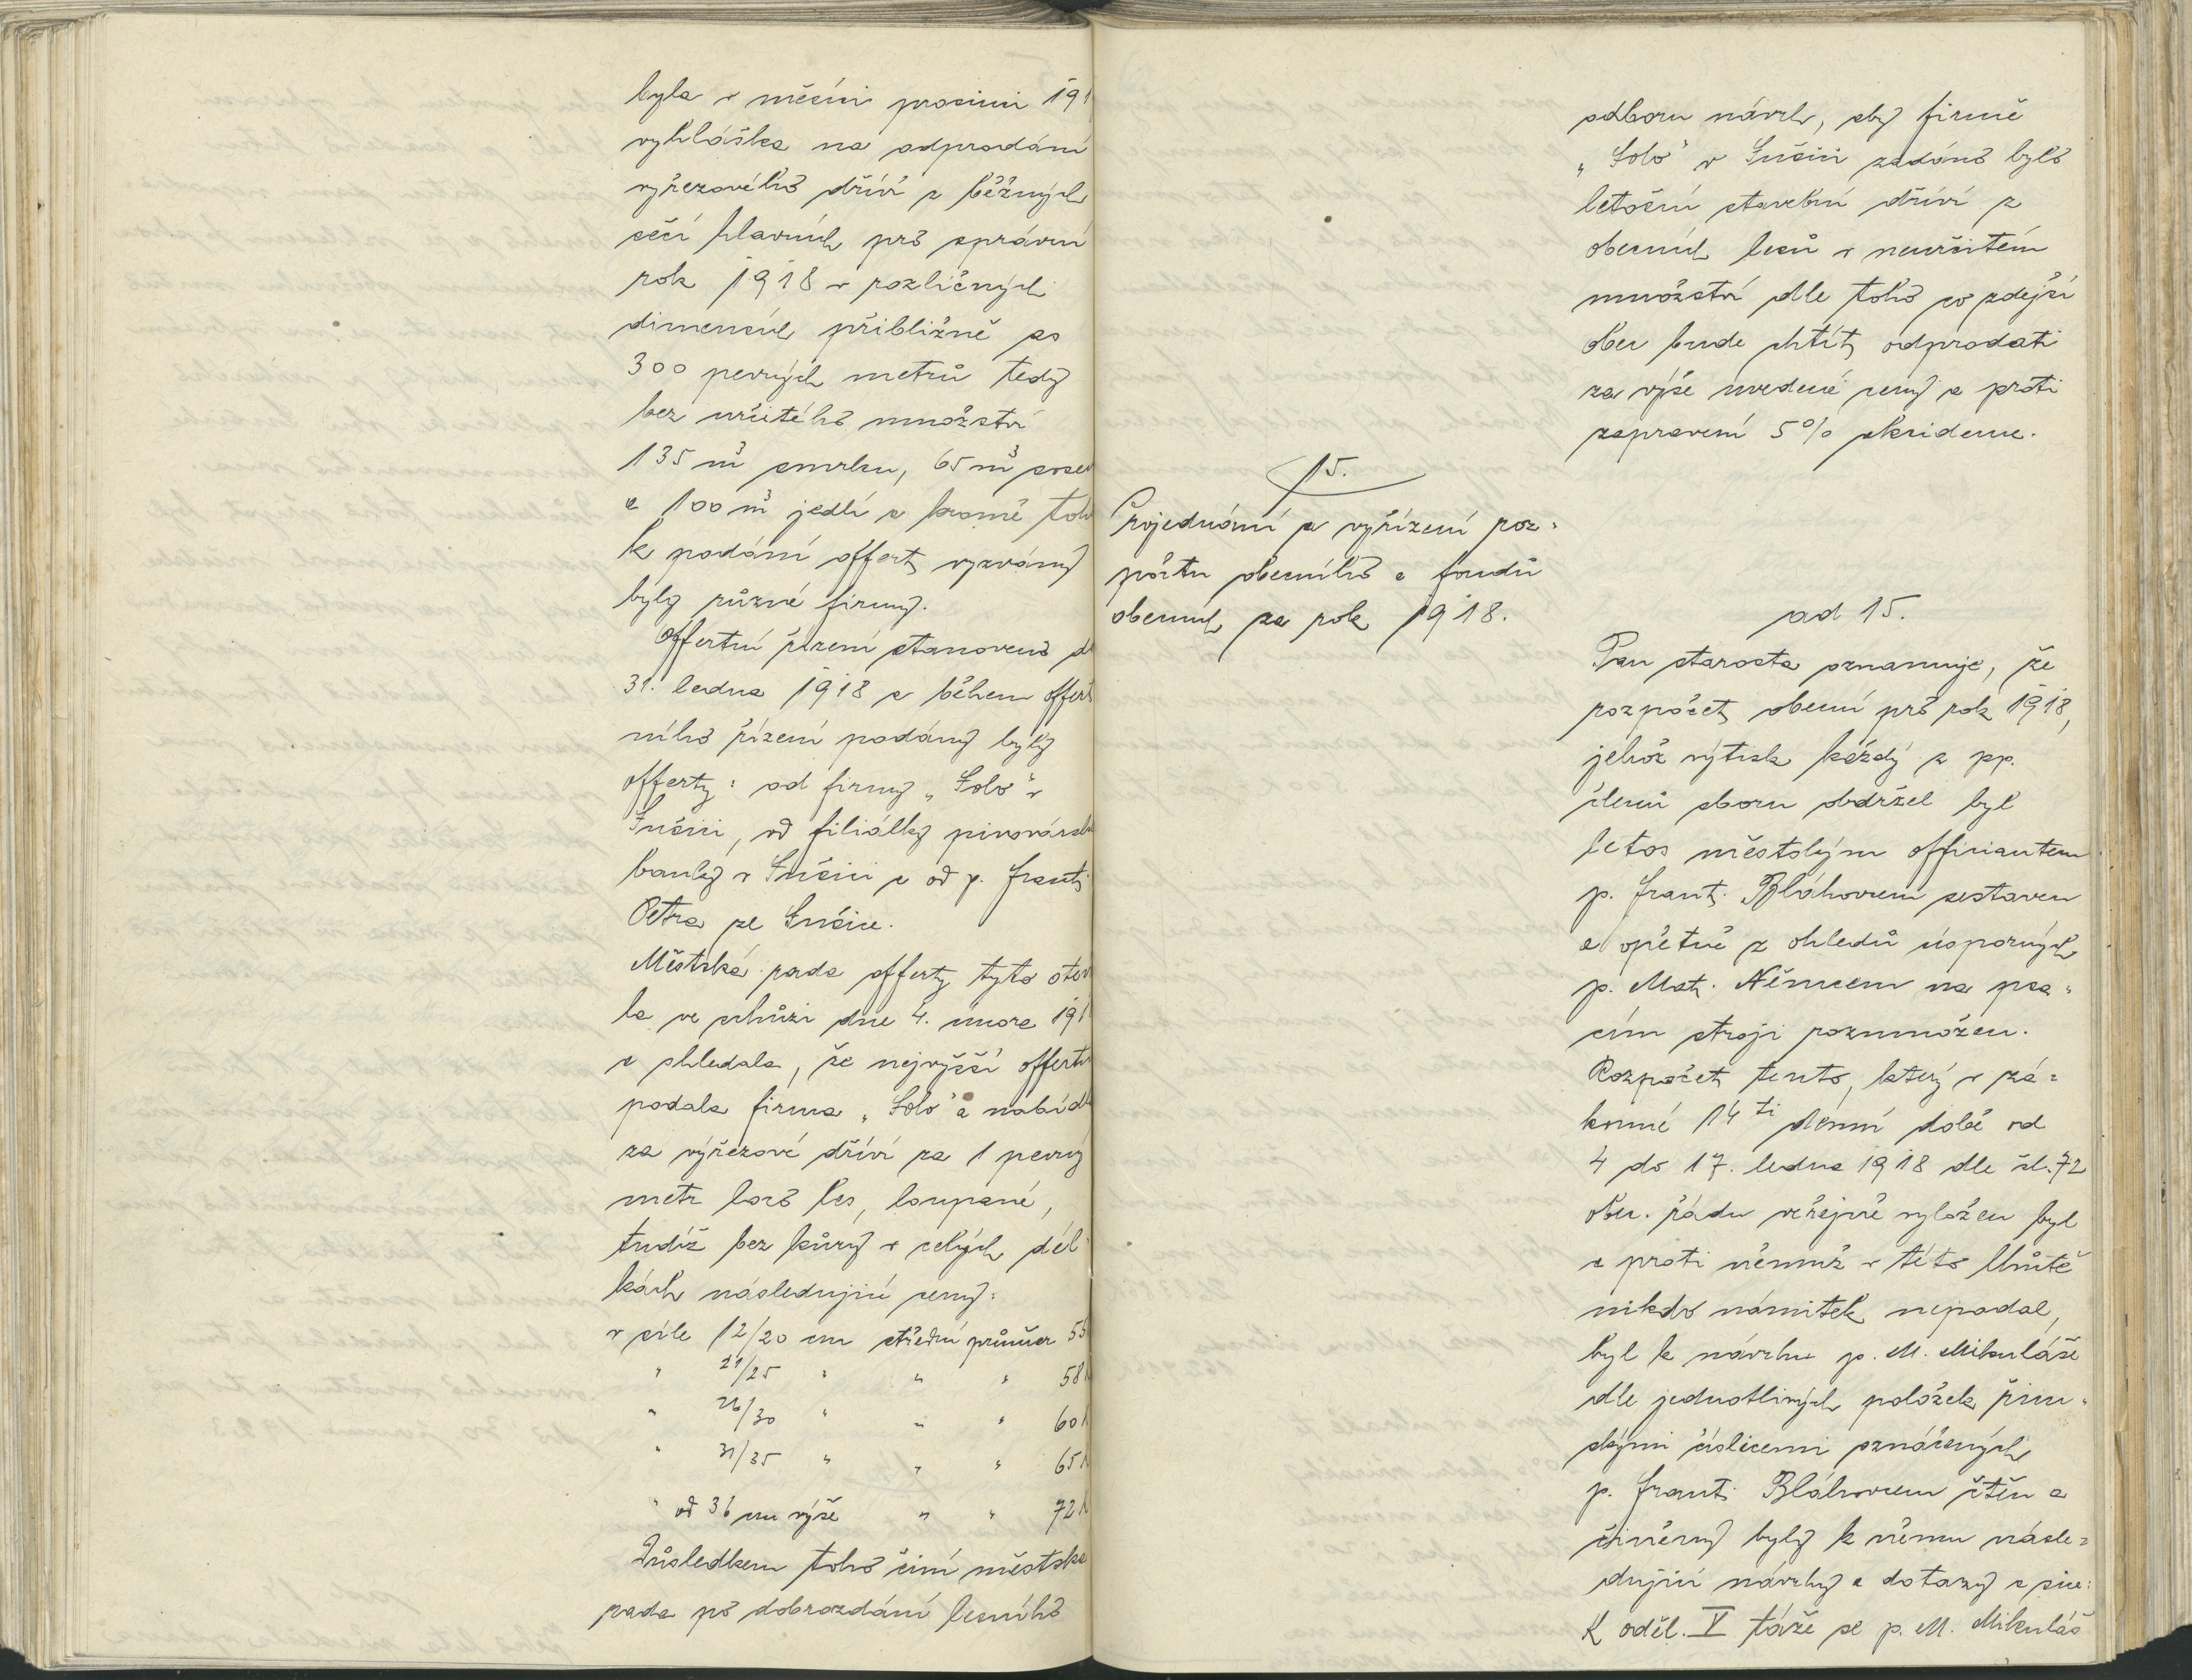 byla v měsíci prosinci 191
vyhláška na odprodání
výřezového dříví z běžných
sečí hlavních pro správní
rok 1918 v rozličných
dimensích přibližně as
300 pevných metrů tedy
bez určitého množství
135 m³ smrku, 65 m³ sosen
a 100 m³ jedlí a kromě toh
k podání offert vyzvány
byly různé firmy.
Offertní řízení stanoveno d
31. ledna 1918 a během offert
ního řízení podány byly
offerty: od firmy „Solo" v
Sušici, od filiálky pivovársk
banky v Sušici a od p. Frant.
Petra ze Sušice.
Městská rada offerty tyto otev
la ve schůzi dne 4. února 191
a shledala, že nejvyšší offertu
podala firma „Solo" a nabídl
za výřezové dříví za 1 pevný
metr loco les, loupané,
tudíž bez kůry v celých dél
kách následující ceny:
v síle 12/20 cm střední průměr 55
" 21/25 " " " 58 K
" 26/30 " " " 60 K
" 31/35 " " " 65 K
" od 36 cm výše " " 72 K
Důsledkem toho činí městská
rada po dobrozdání lesního
odboru návrh, aby firmě
„Solo" v Sušici zadáno bylo
letošní stavební dříví z
obecních lesů v neurčitém
množství dle toho co zdejší
obec bude chtít odprodati
za výše uvedené ceny a proti
zapravení 5% skridence.
15.
Projednání a vyřízení roz-
počtu obecního a fondů
obecních za rok 1918.
ad 15.
Pan starosta oznamuje, že
rozpočet obecní pro rok 1918,
jehož výtisk každý z pp.
členů sboru obdržel byl
letos městským officiantem
p. Frant. Bláhovcem sestaven
a opětně z ohledů úsporných
p. Mat. Němcem na psa-
cím stroji rozmnožen.
Rozpočet tento, který v zá-
konné 14 ti denní době od
4 do 17. ledna 1918 dle čl. 72
obec. řádu veřejně vyložen byl
a proti němuž v této lhůtě
nikdo námitek nepodal,
byl k návrhu p. M. Mikuláše
dle jednotlivých položek řím-
skými číslicemi označených
p. Frant. Bláhovcem čten a
činěny byly k němu násle-
dující návrhy a dotazy a sice:
K oděl. V táže se p. M. Mikuláš